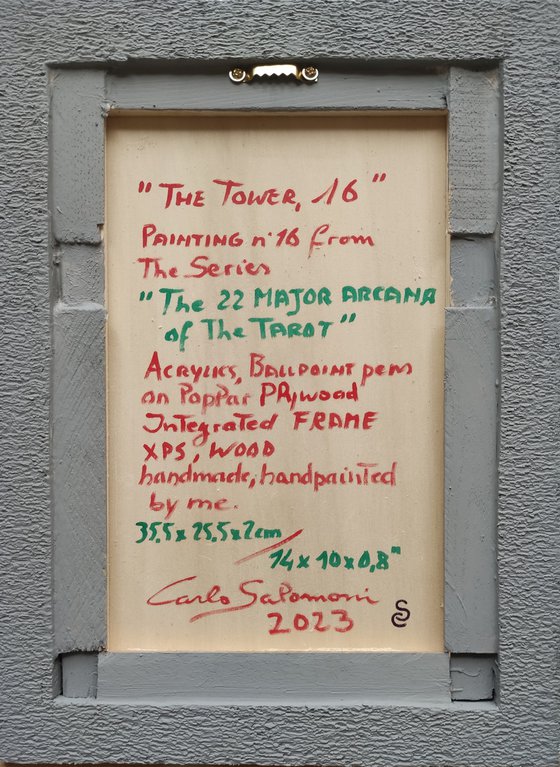 "THE TOWER, 16"
PAINTING n°16 from
The Series
"The 22 MAJOR ARCANA
of The TAROT"
ACRYLICS, BALLPOINT pens
on Poplar Plywood
Integrated FRAME
XPS, WOOD
handmade, handpainted
by me.
35,5x25,5x2cm /
14x10x0,8"
Carlo Salomoni
2023
SC